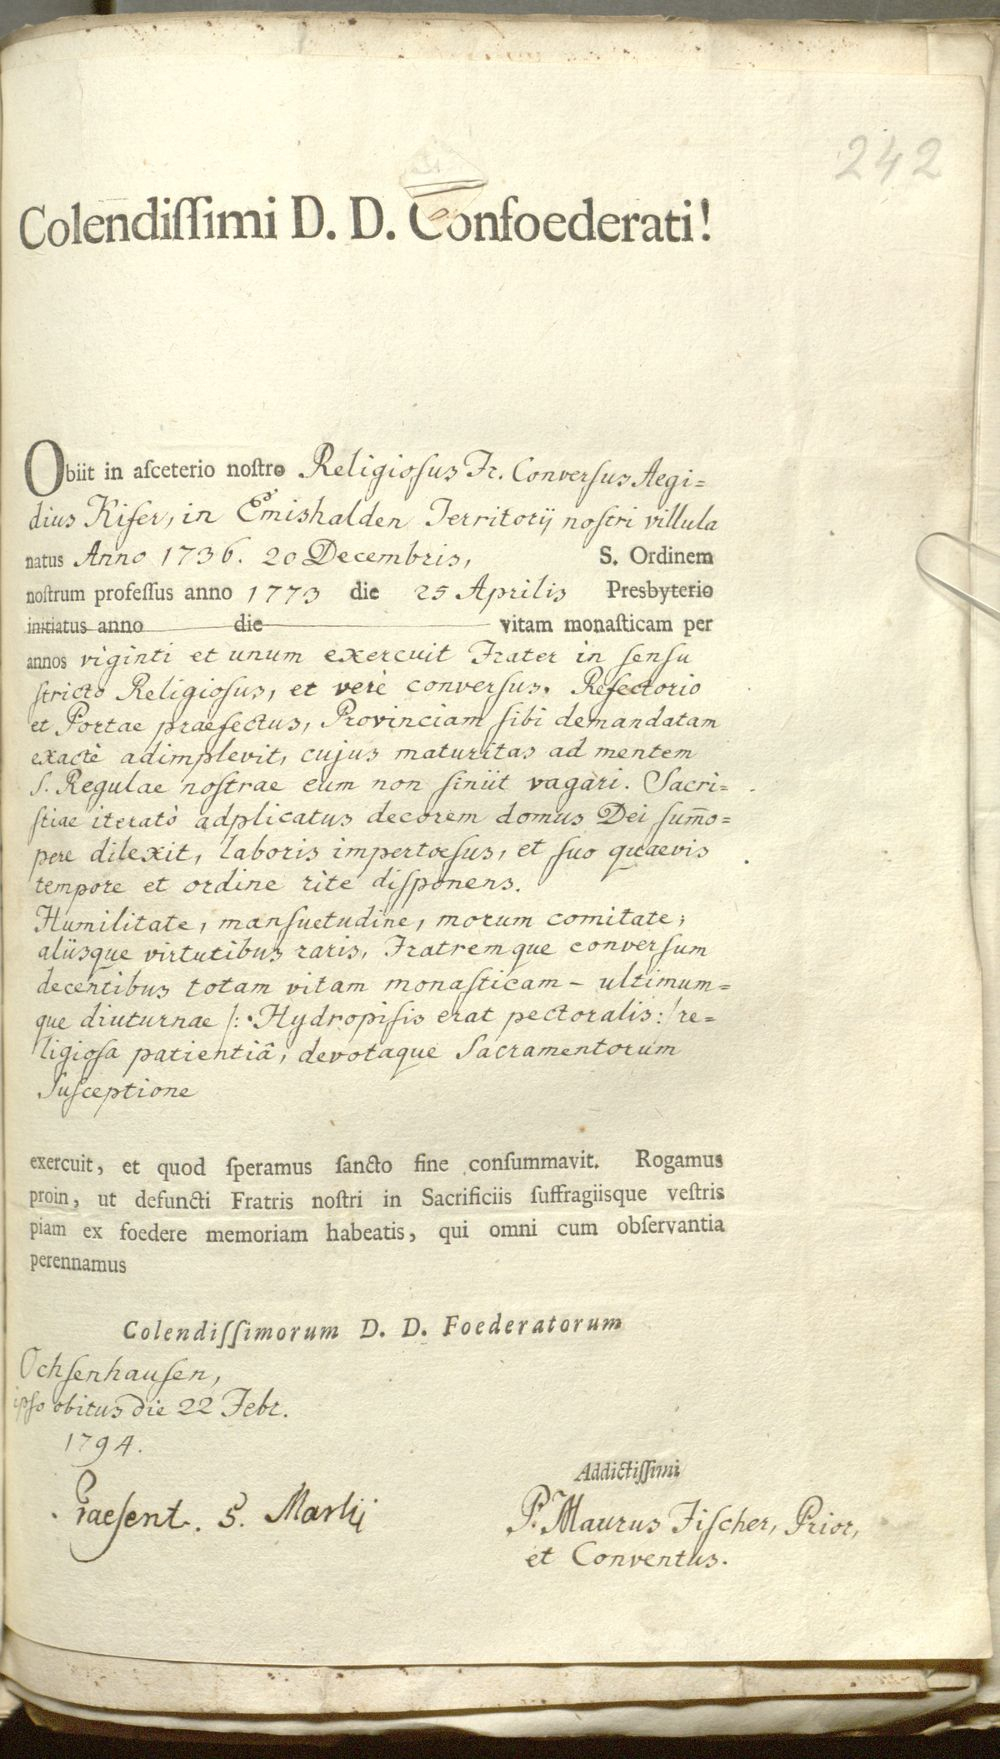 242
Colendiſſimi D. D. Confoederati!
Obiit in aſceterio noſtro Religioſus Fr. Converſus Aegi=
dius Kiſer, in Emishalden Territorij noſtri villula
natus Anno 1736. 20 Decembris, S. Ordinem
noſtrum profeſſus anno 1773 die 25 Aprilis Presbyterio
initiatus anno die vitam monaſticam per
annos viginti et unum exercuit Frater in ſenſu
ſtricto Religioſus, et verè converſus. Refectorio
et Portae praefectus, Provinciam ſibi demandatam
exactè adimplevit, cujus maturitas ad mentem
S. Regulae noſtrae eum non ſiniit vagari. Sacri=
ſtiae iteratò adplicatus decorem domus Dei ſum̄o=
pere dilexit, laboris impertoeſus, et ſuo quaevis
tempore et ordine rite diſponens.
Humilitate, manſuetudine, morum comitate,
aliisque virtutibus raris, Fratremque converſum
decentibus totam vitam monaſticam – ultimum=
que diuturnae /: Hydropiſis erat pectoralis :/ re=
ligioſa patientiâ, devotaque Sacramentorum
Suſceptione
exercuit, et quod ſperamus ſancto fine conſummavit. Rogamus
proin, ut defuncti Fratris noſtri in Sacrificiis ſuffragiisque veſtris
piam ex foedere memoriam habeatis, qui omni cum obſervantia
perennamus
Colendiſſimorum D. D. Foederatorum
Ochſenhauſen,
ipſo obitus die 22 Febr.
1794.
Addictiſſimi
Praeſent. 5. Martij
P. Maurus Fiſcher, Prior,
et Conventus.